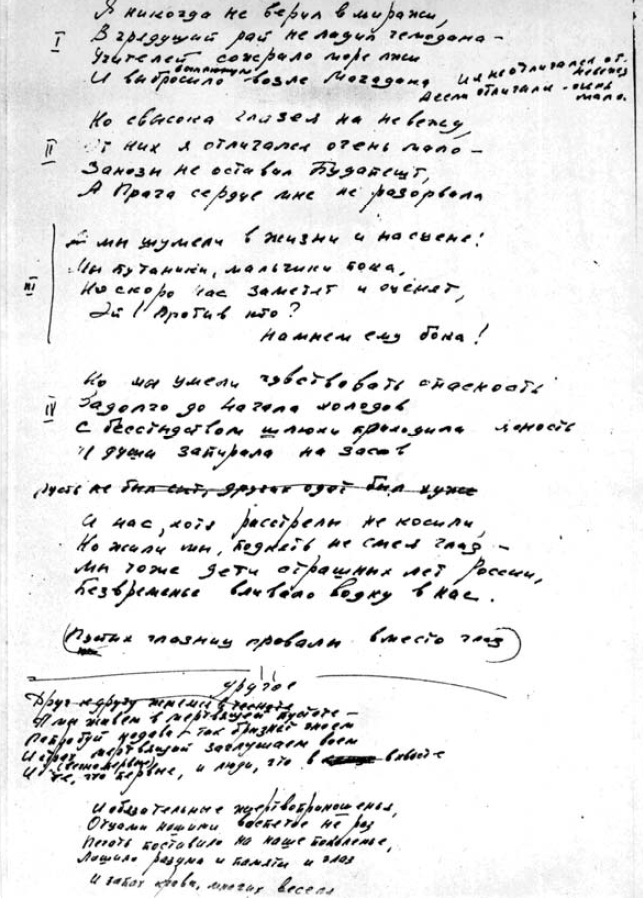 Я никогда не верил в миражи,
I
В грядущий рай не ладил чемодана –
Учителей сожрало море лжи
И выбросило возле Магадана
И я не отличался от
невежд
А если отличался – очень
мало.
Но свысока глазея на невежд,
II
От них я отличался очень мало –
Занозы не оставил Будапешт,
А Прага сердце мне не разорвала
А мы шумели в жизни и на сцене!
Мы путаники, мальчики пока,
III
Но скоро нас заметят и оценят,
Эй! Против кто?
Намнем ему бока!
Но мы умели чувствовать опасность
IV
Задолго до начала холодов
С бесстыдством шлюхи приходила ясность
И души запирала на засов
Пусть не был сыт, других одет был хуже
И нас, хотя расстрелы не косили,
Но жили мы, поднять не смея глаз –
Мы тоже дети страшных лет России,
Безвременье вливало водку в нас.
(Пустых глазниц провалы вместо глаз)
Другое
Друг к другу жмемся в тесноте
И мы живем в мертвящей пустоте –
Попробуй надави – так брызнет гноем
И страх мертвящий заглушаем воем
И те, что первые, и люди, что в хвосте
И обязательные жертвоприношенья,
Отцами нашими воспетое не раз
Печать поставило на наше поколенье,
Лишило разума и памяти и глаз
И запах крови, многих веселя